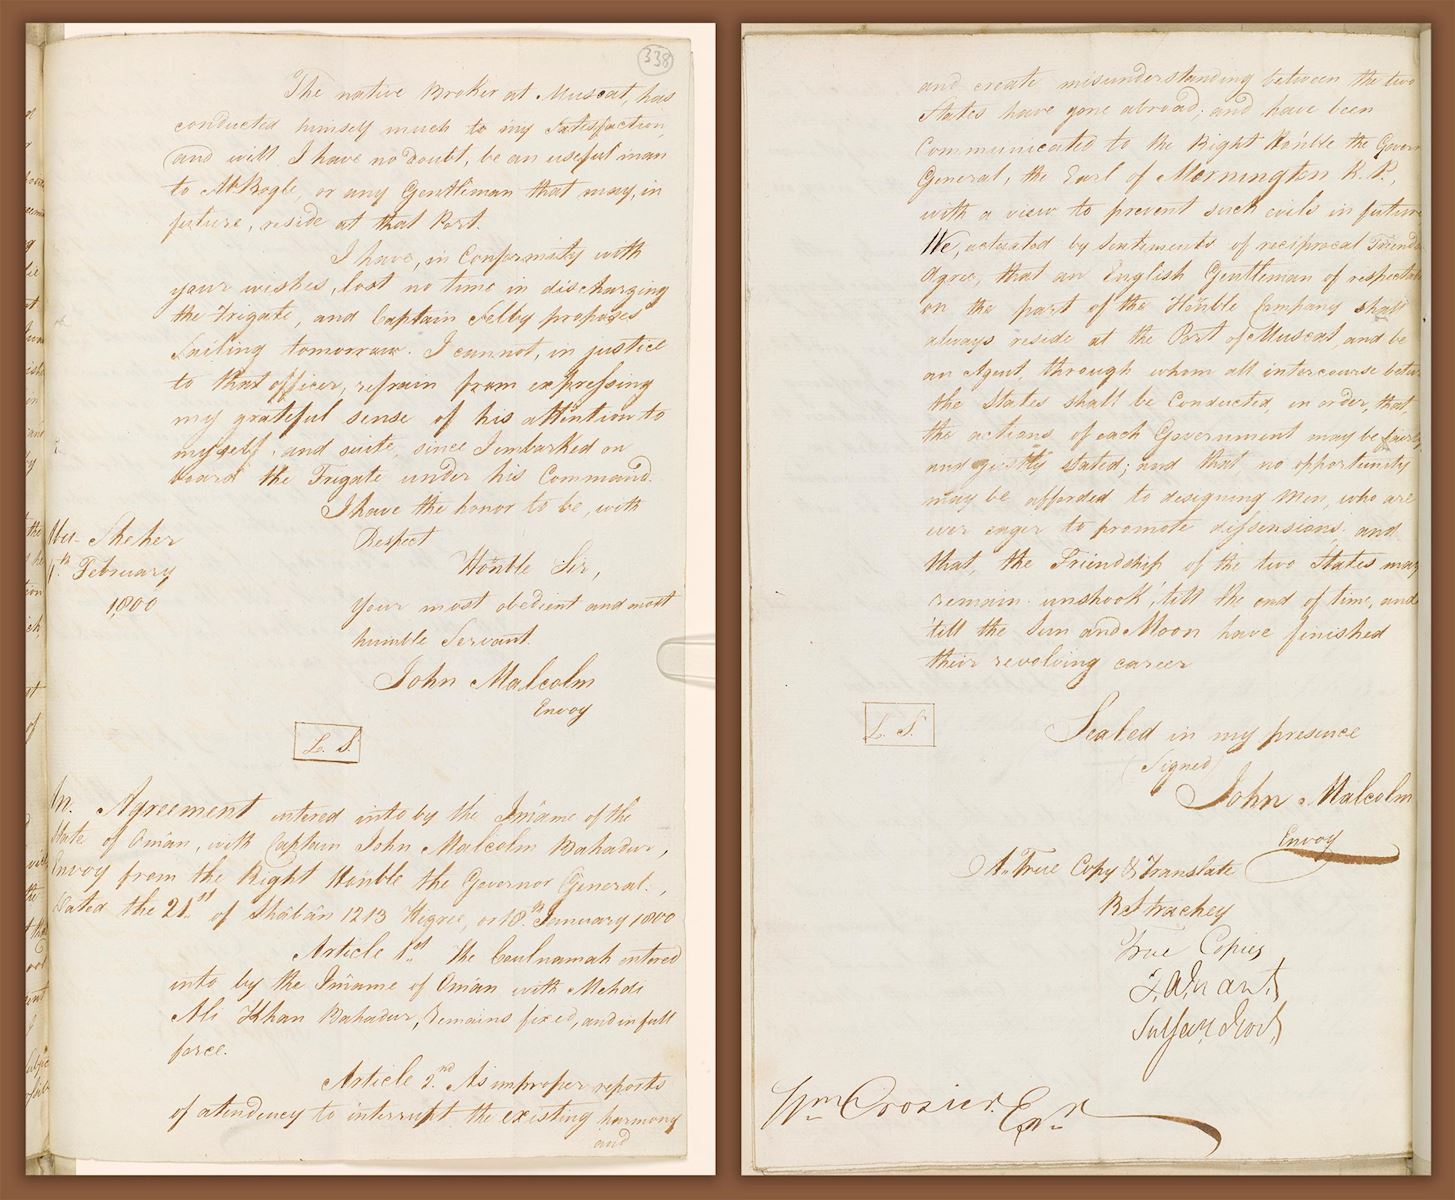 338
The native Broker at Muscat, has
conducted himself much to my satisfaction
and will, I have no doubt, be an useful man
to Mr Bogle, or any Gentleman that may, in
future, reside at that Port.
I have, in Conformity with
your wishes, lost no time in discharging
the Frigate, and Captain Selby proposes
Sailing tomorrow. I cannot, in justice
to that officer, refrain from expressing
my grateful sense of his attention to
myself, and suite, since I embarked on
board the Frigate under his Command.
I have the honor to be, with
Respect
Sheher
February
1800
Honble Sir,
Your most obedient and most
humble Servant.
John Malcolm
Envoy
L. S.
Agreement entered into by the Imame of the
State of Oman, with Captain John Malcolm Bahadur,
Envoy from the Right Honble the Governor General,
Dated the 21st of Shâbân 1213 Hegree, or 18th January 1800
Article 1st. The Coulnamah entered
into by the Imame of Oman with Mehdi
Ali Khan Bahadur, Remains fixed, and in full
force.
Article 2nd. As improper reports
of atendency to interrupt the existing harmony
and
and create misunderstanding between the two
States have gone abroad; and have been
Communicated to the Right Honble the Govern
General, the Earl of Mornington K.P.,
with a view to prevent such evils in future
We, actuated by sentiments of reciprocal Friends
Agree, that an English Gentleman of respectab
on the part of the Honble Company shall
always reside at the Port of Muscat, and be
an Agent through whom all intercourse betw
the States shall be Conducted, in order, that
the actions of each Government may be fairly
and justly stated; and that no opportunity
may be afforded to designing Men, who are
ever eager to promote dissensions, and
that, the Friendship of the two States may
remain unshook, 'till the end of time, and
'till the Sun and Moon have finished
their revolving career
L. S.
Sealed in my presence
(Signed)
John Malcolm
Envoy
A True Copy & Translate
R Strachey
True Copies
Wm Crozier Esqr